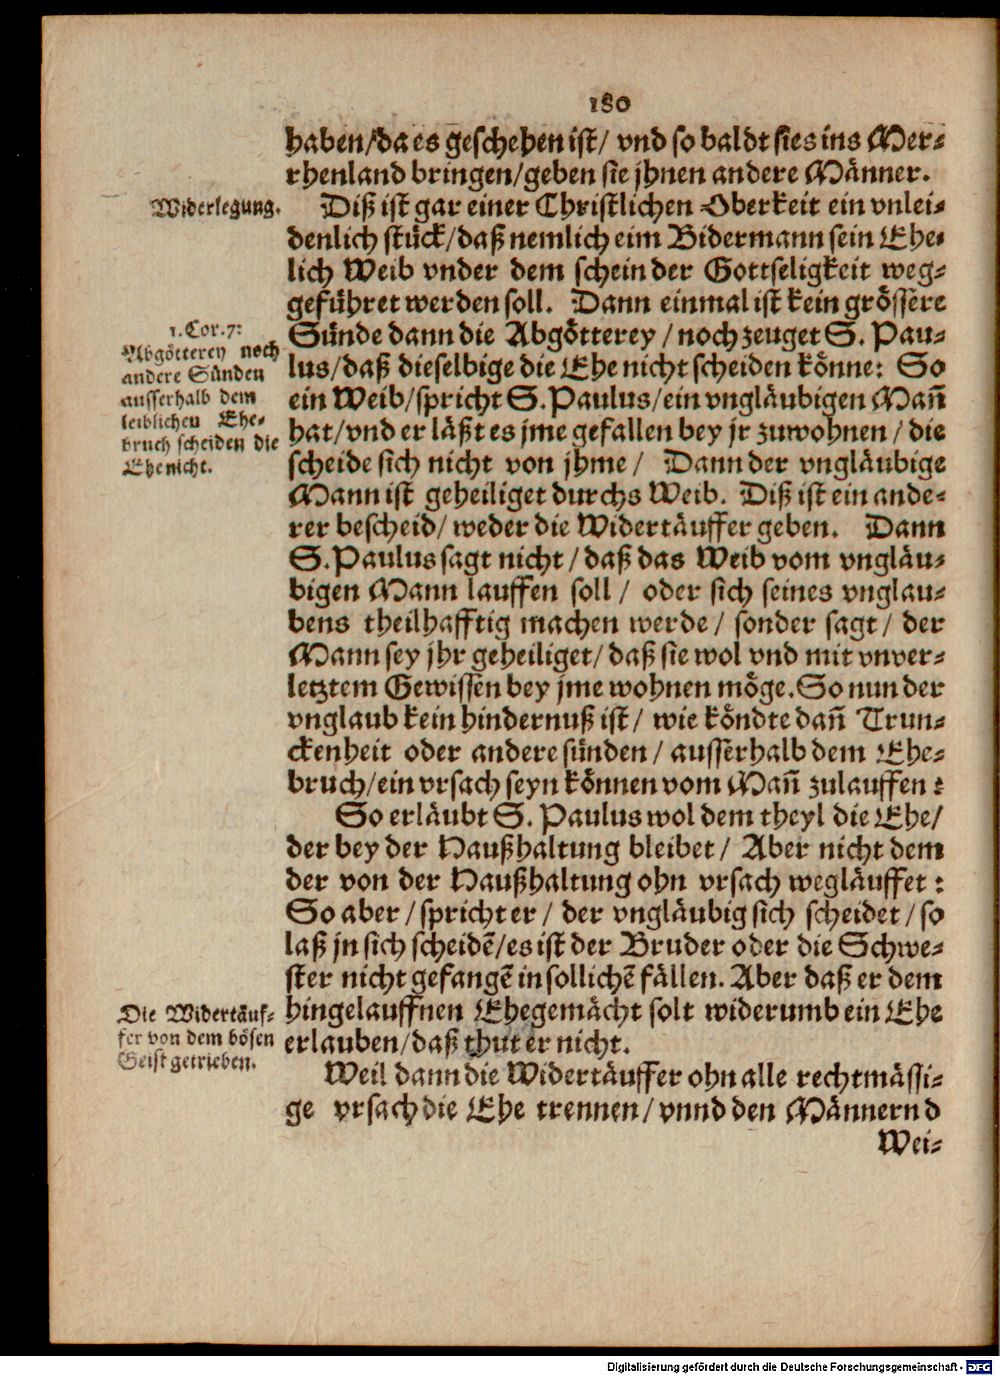 180
haben/da es geschehen ist/ vnd so baldt sies ins Mer-
rhenland bringen/geben sie jhnen andere Männer.
Widerlegung.
Diß ist gar einer Christlichen Oberkeit ein vnlei-
denlich stück/daß nemlich eim Bidermann sein Ehe-
lich Weib vnder dem schein der Gottseligkeit weg-
geführet werden soll. Dann einmal ist kein grössere
Sünde dann die Abgötterey / noch zeuget S. Pau-
lus/daß dieselbige die Ehe nicht scheiden könne: So
ein Weib/spricht S. Paulus/ein vngläubigen Mañ
hat/vnd er läßt es jme gefallen bey jr zuwohnen / die
scheide sich nicht von jhme / Dann der vngläubige
Mann ist geheiliget durchs Weib. Diß ist ein ande-
rer bescheid/ weder die Widertäuffer geben. Dann
S. Paulus sagt nicht / daß das Weib vom vngläu-
bigen Mann lauffen soll / oder sich seines vnglau-
bens theilhafftig machen werde / sonder sagt / der
Mann sey jhr geheiliget/ daß sie wol vnd mit vnver-
letztem Gewissen bey jme wohnen möge. So nun der
vnglaub kein hindernuß ist / wie köndte dañ Trun-
ckenheit oder andere sünden / ausserhalb dem Ehe-
bruch/ein vrsach seyn können vom Mañ zulauffen:
1. Cor. 7:
Abgötterey noch
andere Sünden
ausserhalb dem
leiblichen Ehe-
bruch scheiden die
Ehe nicht.
So erläubt S. Paulus wol dem theyl die Ehe/
der bey der Haußhaltung bleibet / Aber nicht dem
der von der Haußhaltung ohn vrsach wegläuffet:
So aber / spricht er / der vngläubig sich scheidet / so
laß jn sich scheidẽ/es ist der Bruder oder die Schwe-
ster nicht gefangẽ in sollichẽ fällen. Aber daß er dem
hingelauffnen Ehegemächt solt widerumb ein Ehe
erlauben/daß thut er nicht.
Die Widertäuf-
fer von dem bösen
Geist getrieben.
Weil dann die Widertäuffer ohn alle rechtmässi-
ge vrsach die Ehe trennen/ vnnd den Männern d
Wei-
Digitalisierung gefördert durch die Deutsche Forschungsgemeinschaft - DFG